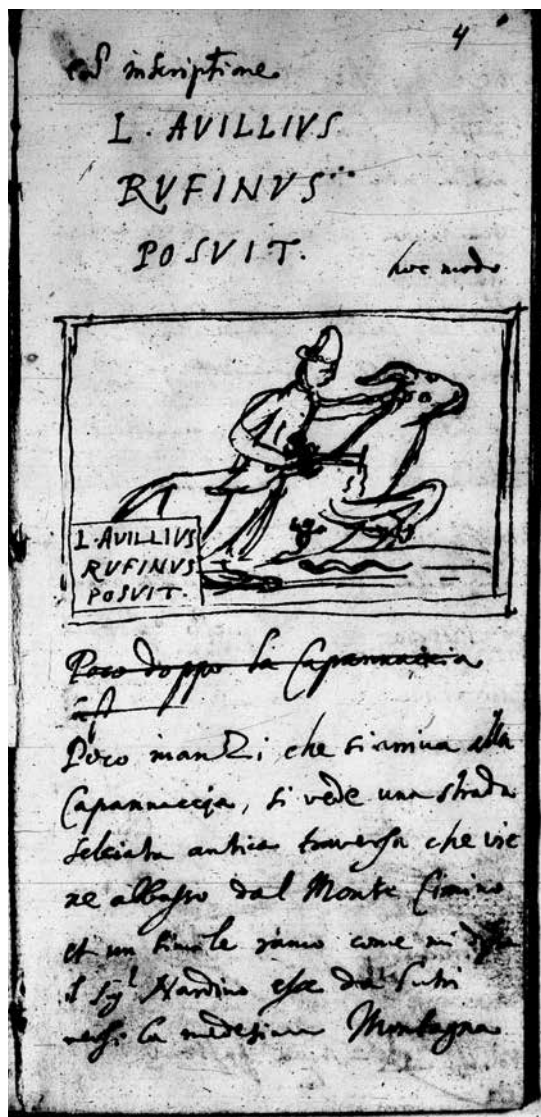 4
cũ inscriptione
L. AVILLIVS
RVFINVS
POSVIT.
hoc modo
L. AVILLIVS
RVFINVS
POSVIT.
Poco doppo la Capannaccia
Poco inanzi che si arriva alla
Capannaccia, si vede una strada
selciata antica traversa che vie
ne abbasso dal Monte Cimino
et un simile ramo come mi
il Sig.r Nardino esce da Sutri
verso la medesima Montagna